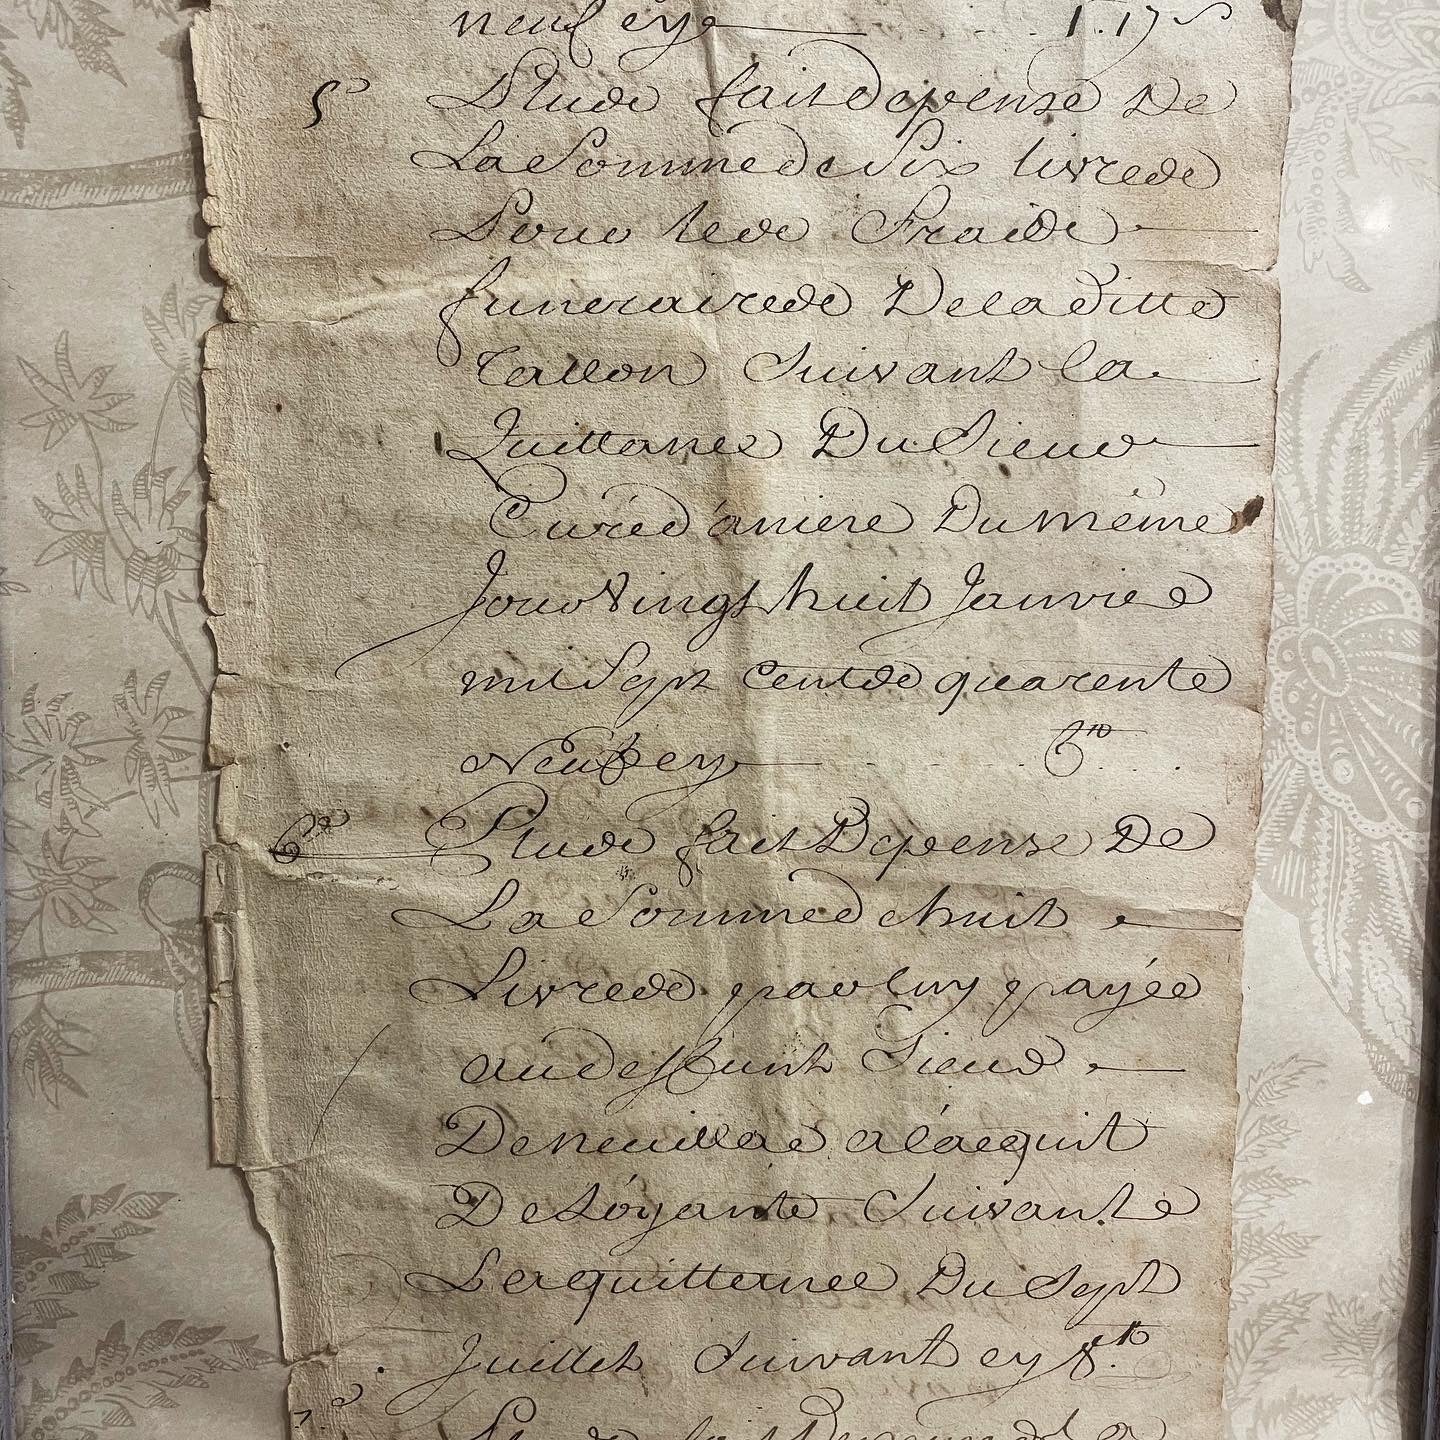 neuf cy 1. 17 s
5° Plus fait depense de
La Somme de Six livres
Pour les Frais
funeraires De la ditte
Tallon Suivant la
Quittance Du Sieur
Curé d'aniere Du même
Jour Vingt huit Janvier
mil Sept Cents quarente
Neuf cy 6 ₶
6° Plus fait Depense De
La Somme de huit
Livres par luy payée
au deffunt Sieur
De neuillac a l'acquit
De Suivante
La quittance Du Sept
Juillet Suivant cy 8 ₶
7°